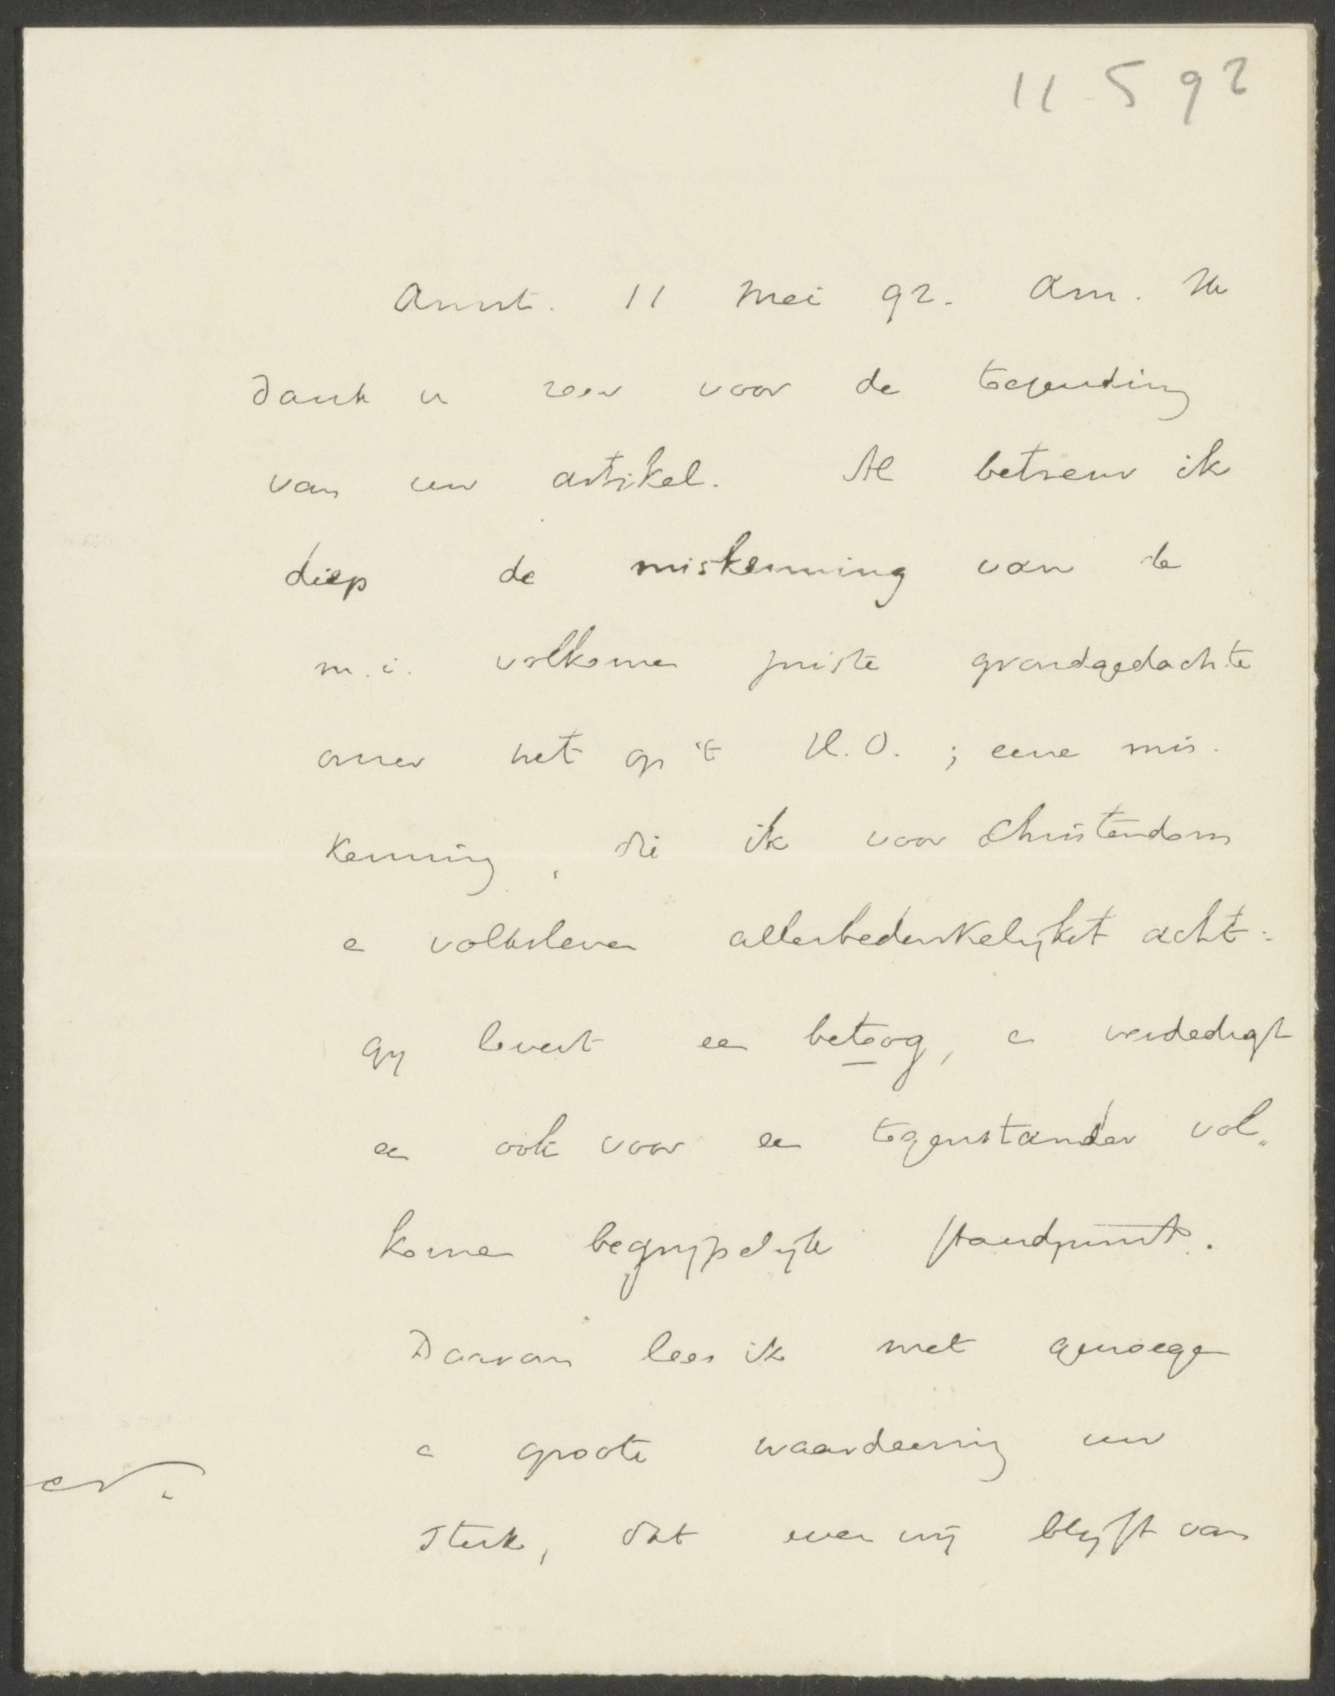 11 5 92
Amst. 11 Mei 92. Am. Ik
dank u zeer voor de toezending
van uw artikel. Al betreur ik
diep de miskenning van de
m.i. volkomen juiste grondgedachte
onzer wet op 't H.O.; eene mis-
kenning, die ik voor Christendom
en volksleven allerbedenkelijkst acht:
gij levert een betoog, en verdedigt
een ook voor een tegenstander vol-
komen begrijpelijk standpunt.
Daarom lees ik met genoegen
en groote waardeering uw
stuk, dat even vrij blijft van